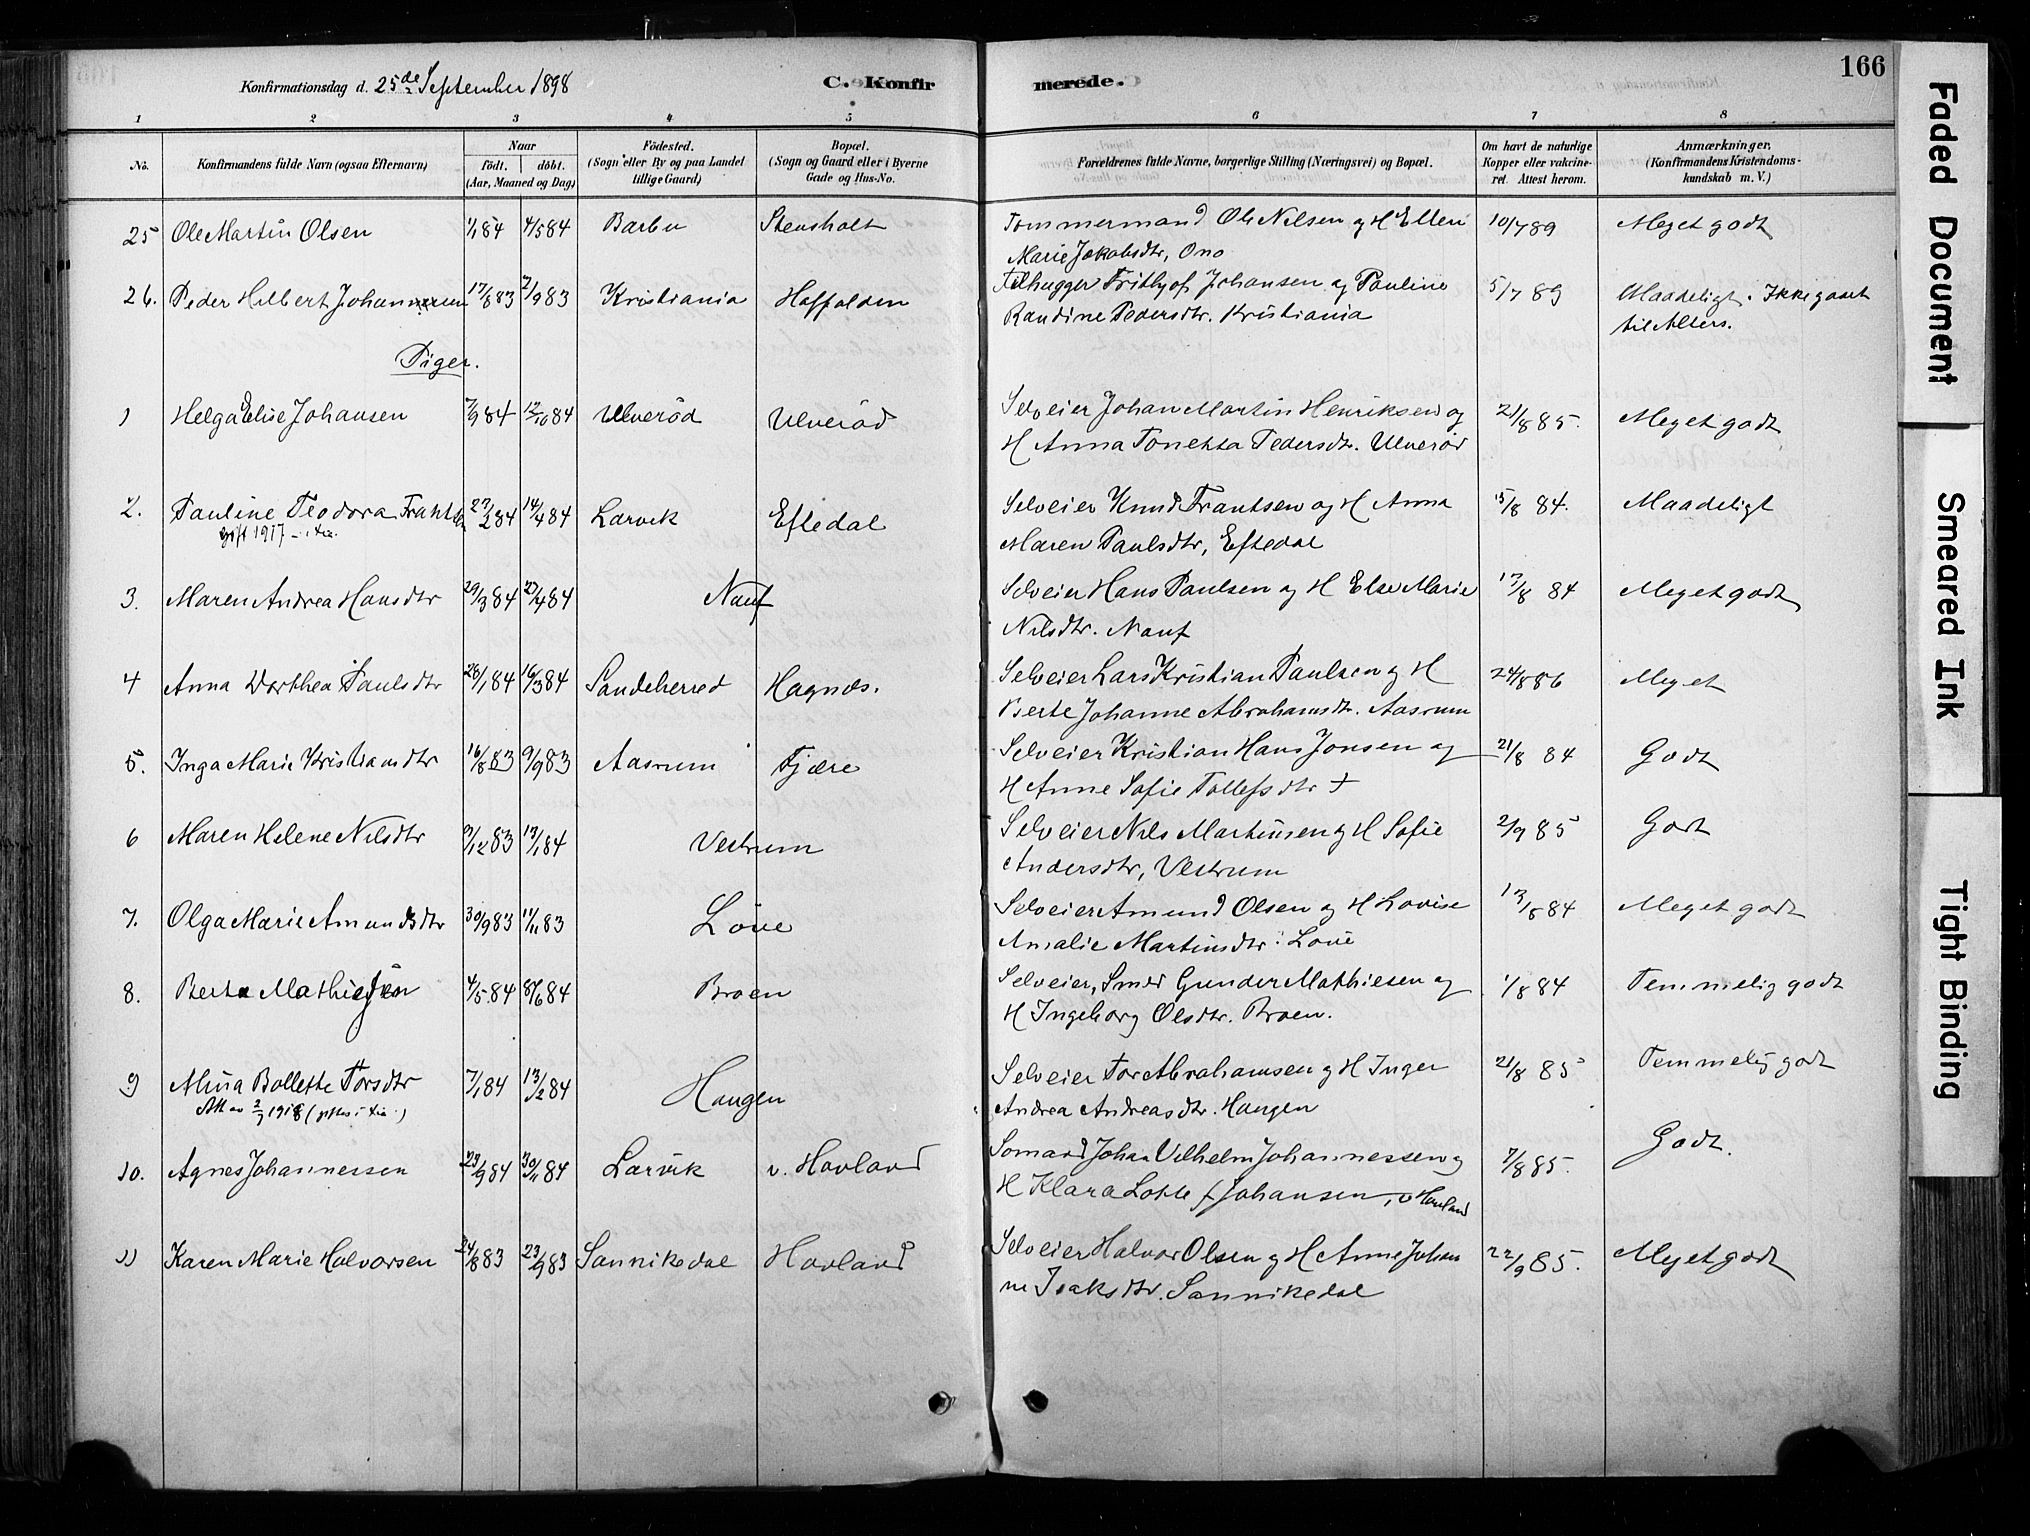 166
Konfirmationsdag d. 25de September 1898
C. Konfirmerede.
1 2 3 4 5 6 7 8
No. Konfirmandens fulde Navn (ogsaa Efternavn) Naar födt. döbt. (Aar, Maaned og Dag) Födested. (Sogn eller By og paa Landet tillige Gaard) Bopæl. (Sogn og Gaard eller i Byerne Gade og Hus-No. Forældrenes fulde Navne, borgerlige Stilling (Næringsvei) og Bopæl. Om havt de naturlige Kopper eller vakcineret. Attest herom. Anmærkninger. (Konfirmandens Kristendomskundskab m. V.)
25 Ole Martin Olsen 1/1 84 4/5 84 Barbu Stensholt Tømmermand Ole Nilsen og H Ellen 10/7 89 Meget godt
Marie Jakobsdtr, Ono
26. Peder Hilbert 17/8 83 2/9 83 Kristiania Haffalden Filhugger Frithjof Johansen og Pauline 5/7 89 Maadeligt. Ikke gaaet
Randine Pedersdtr. Kristiania til Alters.
Piger.
1 Helga Elise Johansen 7/9 84 12/10 84 Ulveröd Ulveröd Selveier Johan Martin Henriksen og 21/8 85. Meget godt
H Anna Tonetta Pedersdtr. Ulveröd
2. Pauline Teodora Frantsen 27/2 84 14/4 84 Larvik Eftedal Selveier Knud Frantsen og H Anna 15/8 84. Maadeligt
gift 1917
Maren Paulsdtr, Eftedal
3. Maren Andrea Hansdtr 29/3 84 27/4 84 Nauf Selveier Hans Paulsen og H Else Marie 17/8 84 Meget godt
Nilsdtr. Nauf
4 Anna Dorthea Paulsdtr 28/1 84 16/3 84 Sandeherred Hagnæs. Selveier Lars Kristian Paulsen og H 24/8 86 Meget
Berte Johanne Abrahamsdtr. Aasrum
5. Inga Marie Kristiansdtr 16/8 83 9/9 83 Aasrum Fjære Selveier Kristian Hans Jonsen og 21/8 84 Godt
H Anne Sofie Tollefsdtr +
6 Maren Helene Nilsdtr 3/12 83 13/1 84 Vestrum Selveier Nils Martinsen og H Sofie 2/9 85 Godt
Andersdtr, Vestrum
7. Olga Marie Amundsdtr 30/9 83 11/11 83 Löve Selveier Amund Olsen og H Lovise 13/8 84 Meget godt
Amalie Martinsdtr. Löve
8. Berta Mathiesen 4/5 84 8/6 84 Broen Selveier, Smed Gunder Mathiesen og 1/8 84 Temmelig godt
H Ingeborg Olsdtr. Broen.
9 Alma Bollette Torsdtr 7/1 84 13/2 84 Haugen Selveier Tor Abrahamsen og H Inger 21/8 85 Temmelig godt
Att av 2/7 1918
Andrea Andreasdtr. Haugen
10. Agnes Johannessen 23/9 84 30/11 84 Larvik v. Hovland Sømand Johan Vilhelm Johannessen og 7/8 85. Godt.
H Klara Lotte f Johansen, v Hovland
11 Karen Marie Halvorsen 24/8 83 23/9 83 Sannikedal Hovland Selveier Halvor Olsen og H Anne Johan 22/9 85. Meget godt
ne Isaksdtr. Sannikedal
Faded Document
Smeared Ink
Tight Binding